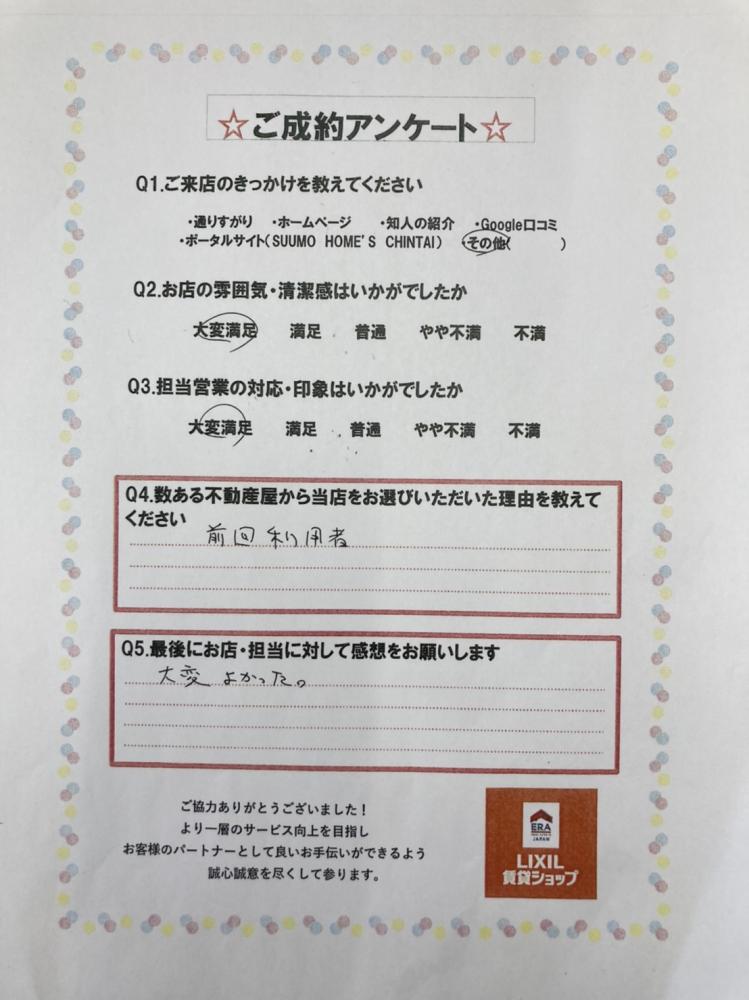 ☆ご成約アンケート☆
Q1.ご来店のきっかけを教えてください
・通りすがり ・ホームページ ・知人の紹介 ・Google口コミ
・ポータルサイト(SUUMO HOME'S CHINTAI) ・その他( )
Q2.お店の雰囲気・清潔感はいかがでしたか
大変満足 満足 普通 やや不満 不満
Q3.担当営業の対応・印象はいかがでしたか
大変満足 満足 普通 やや不満 不満
Q4.数ある不動産屋から当店をお選びいただいた理由を教えて
ください
前回利用者
Q5.最後にお店・担当に対して感想をお願いします
大変よかった。
ご協力ありがとうございました！
より一層のサービス向上を目指し
お客様のパートナーとして良いお手伝いができるよう
誠心誠意を尽くして参ります。
ERA
JAPAN
LIXIL
賃貸ショップ